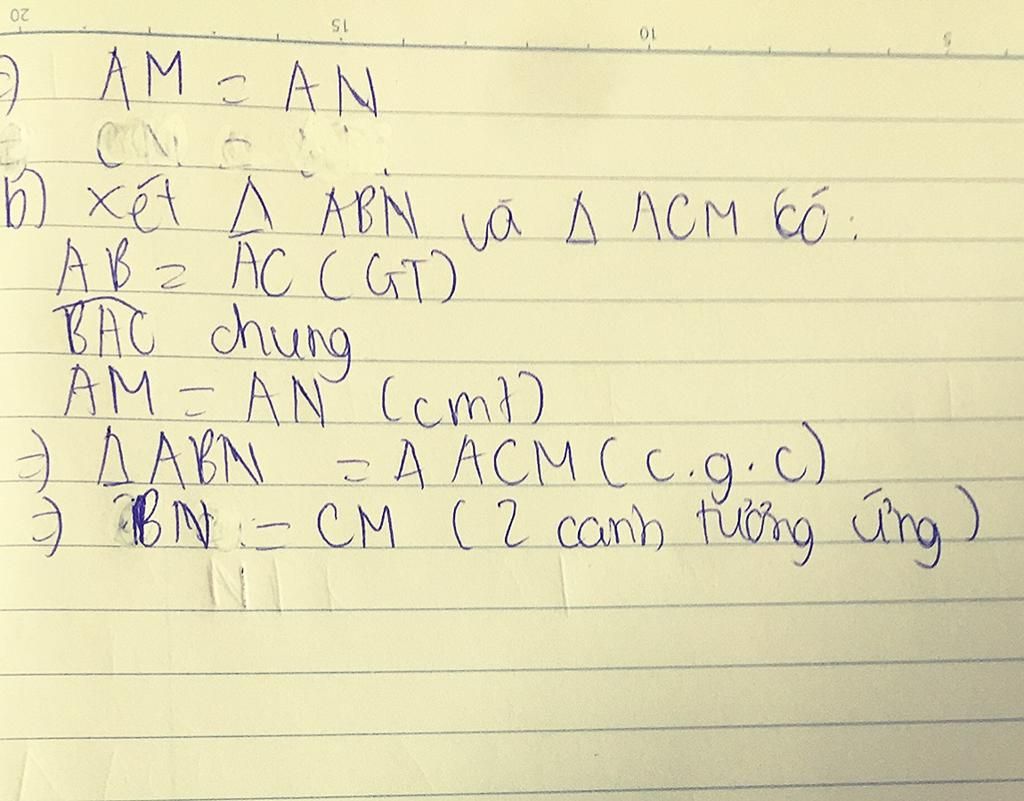 20 15 10 5
⇒ AM = AN
CN =
b) xét Δ ABN và Δ ACM có:
AB = AC (GT)
BAC chung
AM = AN (cmt)
⇒ Δ ABN = Δ ACM (c.g.c)
⇒ BN = CM (2 canh tương ứng)
N